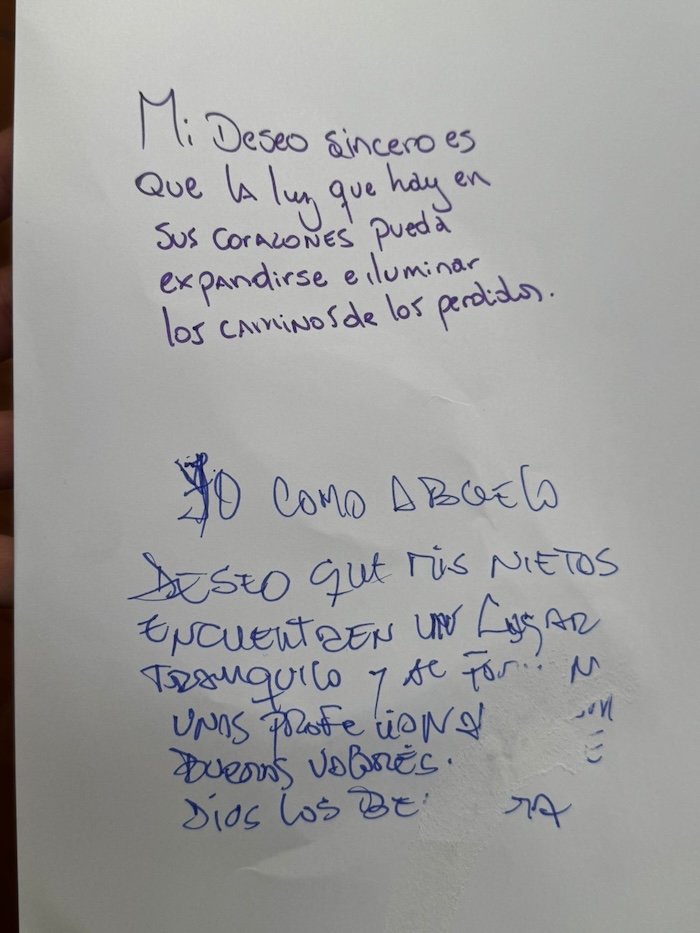 Mi Deseo sincero es
Que la luz que hay en
sus corazones pueda
expandirse e iluminar
los caminos de los perdidos.
YO COMO ABUELO
DESEO QUE MIS NIETOS
ENCUENTREN UN LUGAR
TRANQUILO Y
UNAS
BUENOS VALORES.
DIOS LOS